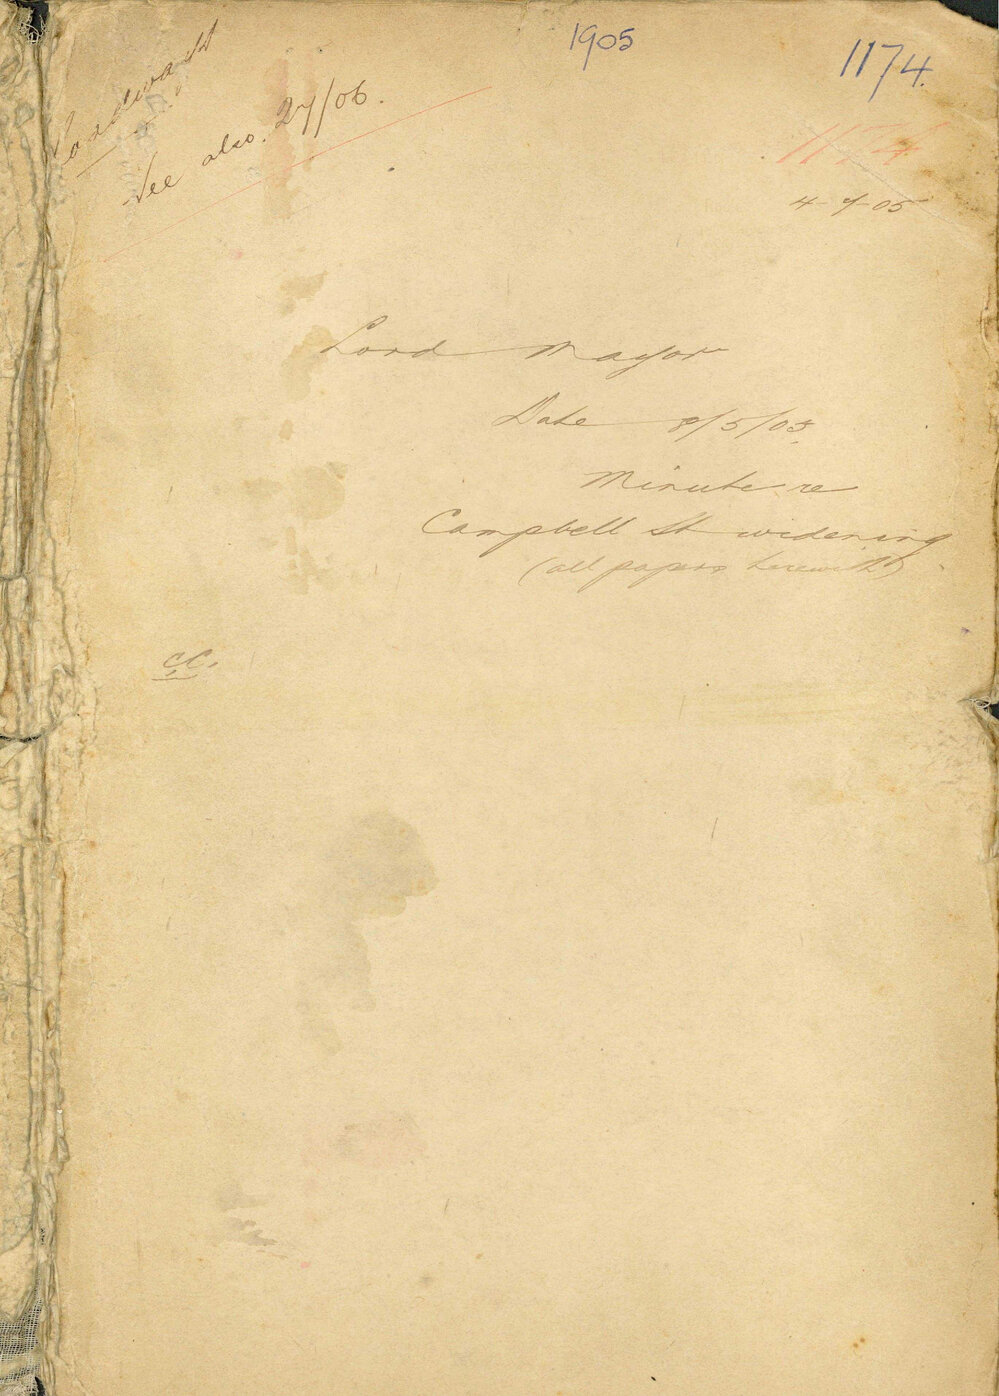 1905
1174.
See also. 27/06.
1174
4-7-05
Lord Mayor
Date 8/5/05
Minute re
Campbell St widening
(all papers herewith)
CC.